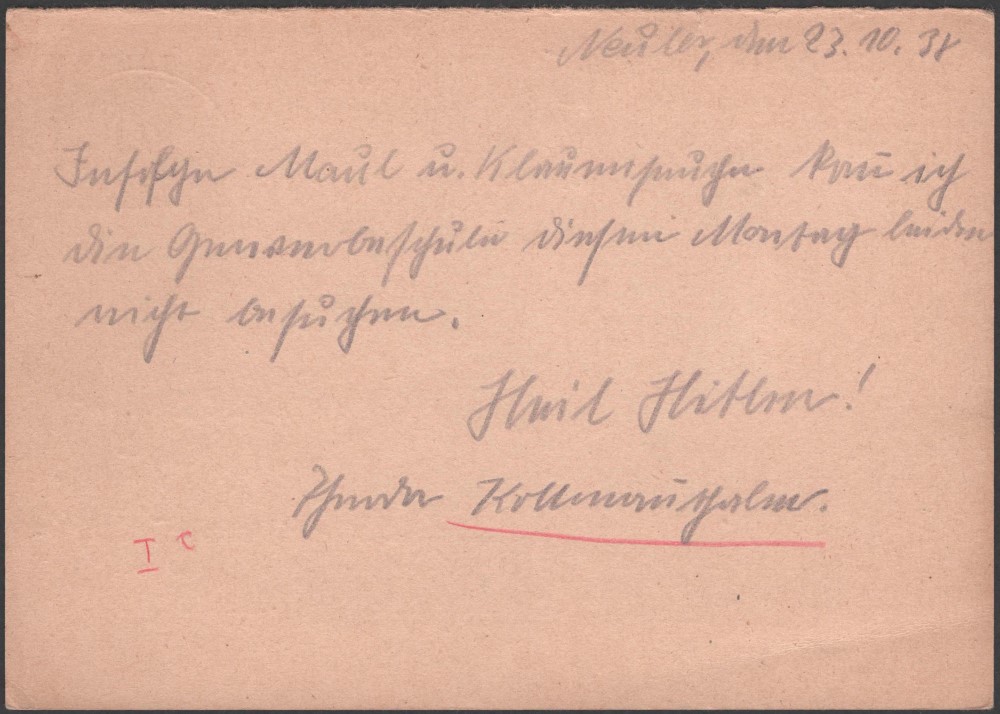 Neuler, den 23.10.38
Infolge Maul u. Klauenseuche kan̄ ich
die Gewerbeschule diesen Montag leider
nicht besuchen.
Heil Hitler!
I c